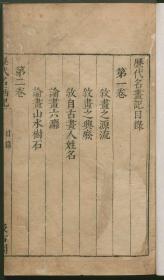 歷代名畫記目錄
第一卷
敘畫之源流
敘畫之興廢
敘自古畫人姓名
論畫六灋
論畫山水樹石
第二卷
目錄